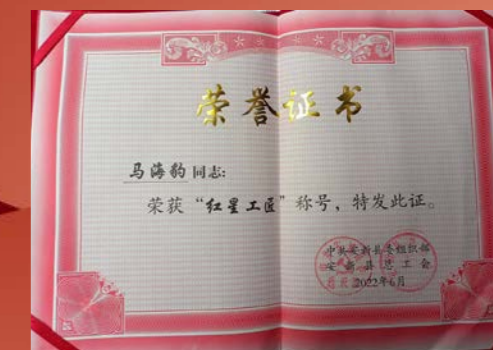 荣誉证书
马海豹同志:
荣获“红星工匠”称号,特发此证。
中共安新县委组织部
安新县总工会
2022年6月